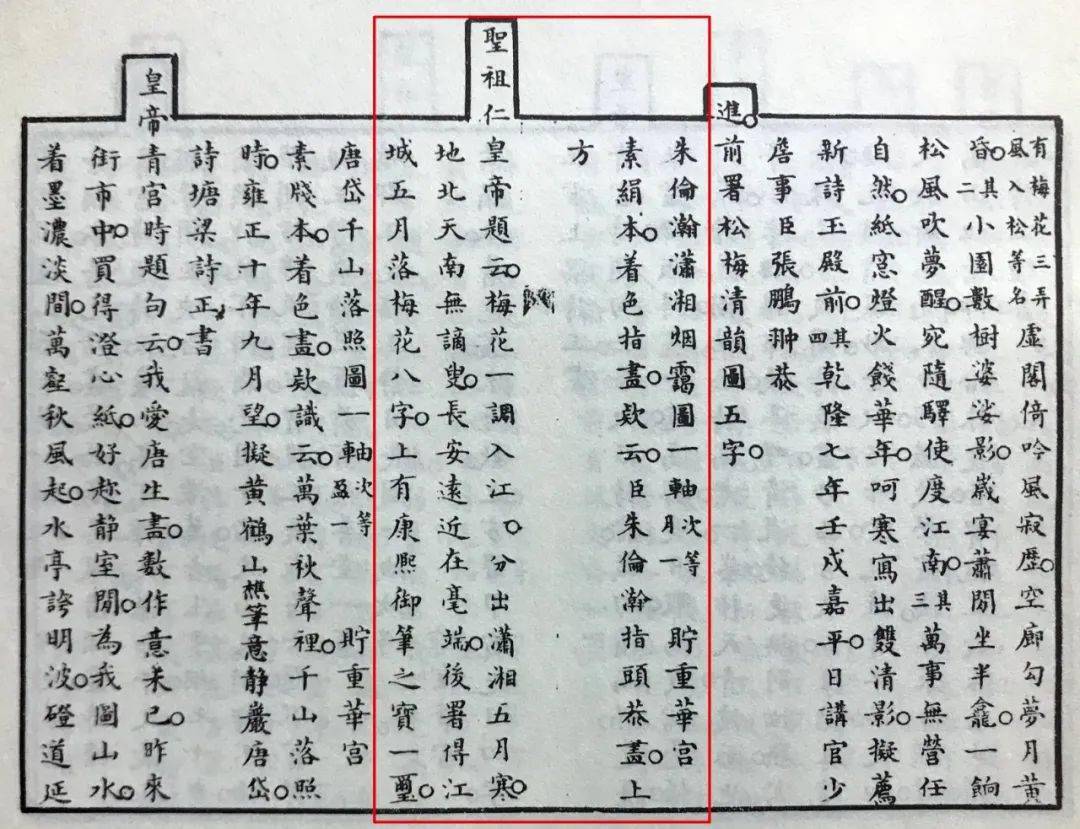 有梅花三弄風入松等名虛閣倚吟風寂歷。空廊勾夢月黃
昏。其二小園數樹婆娑影。歲宴蕭閒坐半龕。一餉
松風吹夢醒。宛隨驛使度江南。其三萬事無營任
自然。紙窓燈火餞華年。呵寒寫出雙清影。擬薦
新詩玉殿前。其四乾隆七年壬戌嘉平。日講官少
詹事臣張鵬翀恭
進。前署松梅清韻圖五字。
朱倫瀚瀟湘烟靄圖一軸次等月一貯重華宮
素絹本。着色指畫。款云。臣朱倫瀚指頭恭畫。上
方
聖祖仁皇帝題云。梅花一調入江。分出瀟湘五月寒。
地北天南無謫叟。長安遠近在毫端。後署得江
城五月落梅花八字。上有康熙御筆之寶一璽。
唐岱千山落照圖一軸次等盈一貯重華宮
素牋本。着色畫。款識云。萬葉秋聲裡。千山落照
時。雍正十年九月望。擬黃鶴山樵筆意靜巖唐岱。
詩塘梁詩正書
皇帝青宮時題句云。我愛唐生畫。數作意未已。昨來
街市中。買得澄心紙。好趂靜室閒。為我圖山水。
着墨濃淡間。萬壑秋風起。水亭誇明波。磴道延